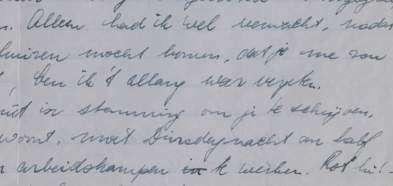 n. Alleen had ik wel verwacht, nadat
huizen mocht komen, dat je me zou
ben ik 't allang weer vergeten.
in stemming om je te schrijven,
woont, want Dinsdagnacht om half
arbeidskampen in te werken. Rot hè!